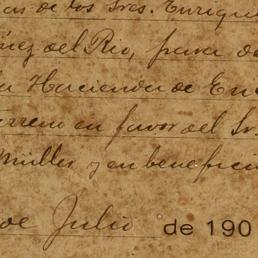 as de los Sres. Enriqu
ñez del Rio, para de
la Hacienda de En
terreno en favor del Sr.
Müller y en benefici
de Julio de 190